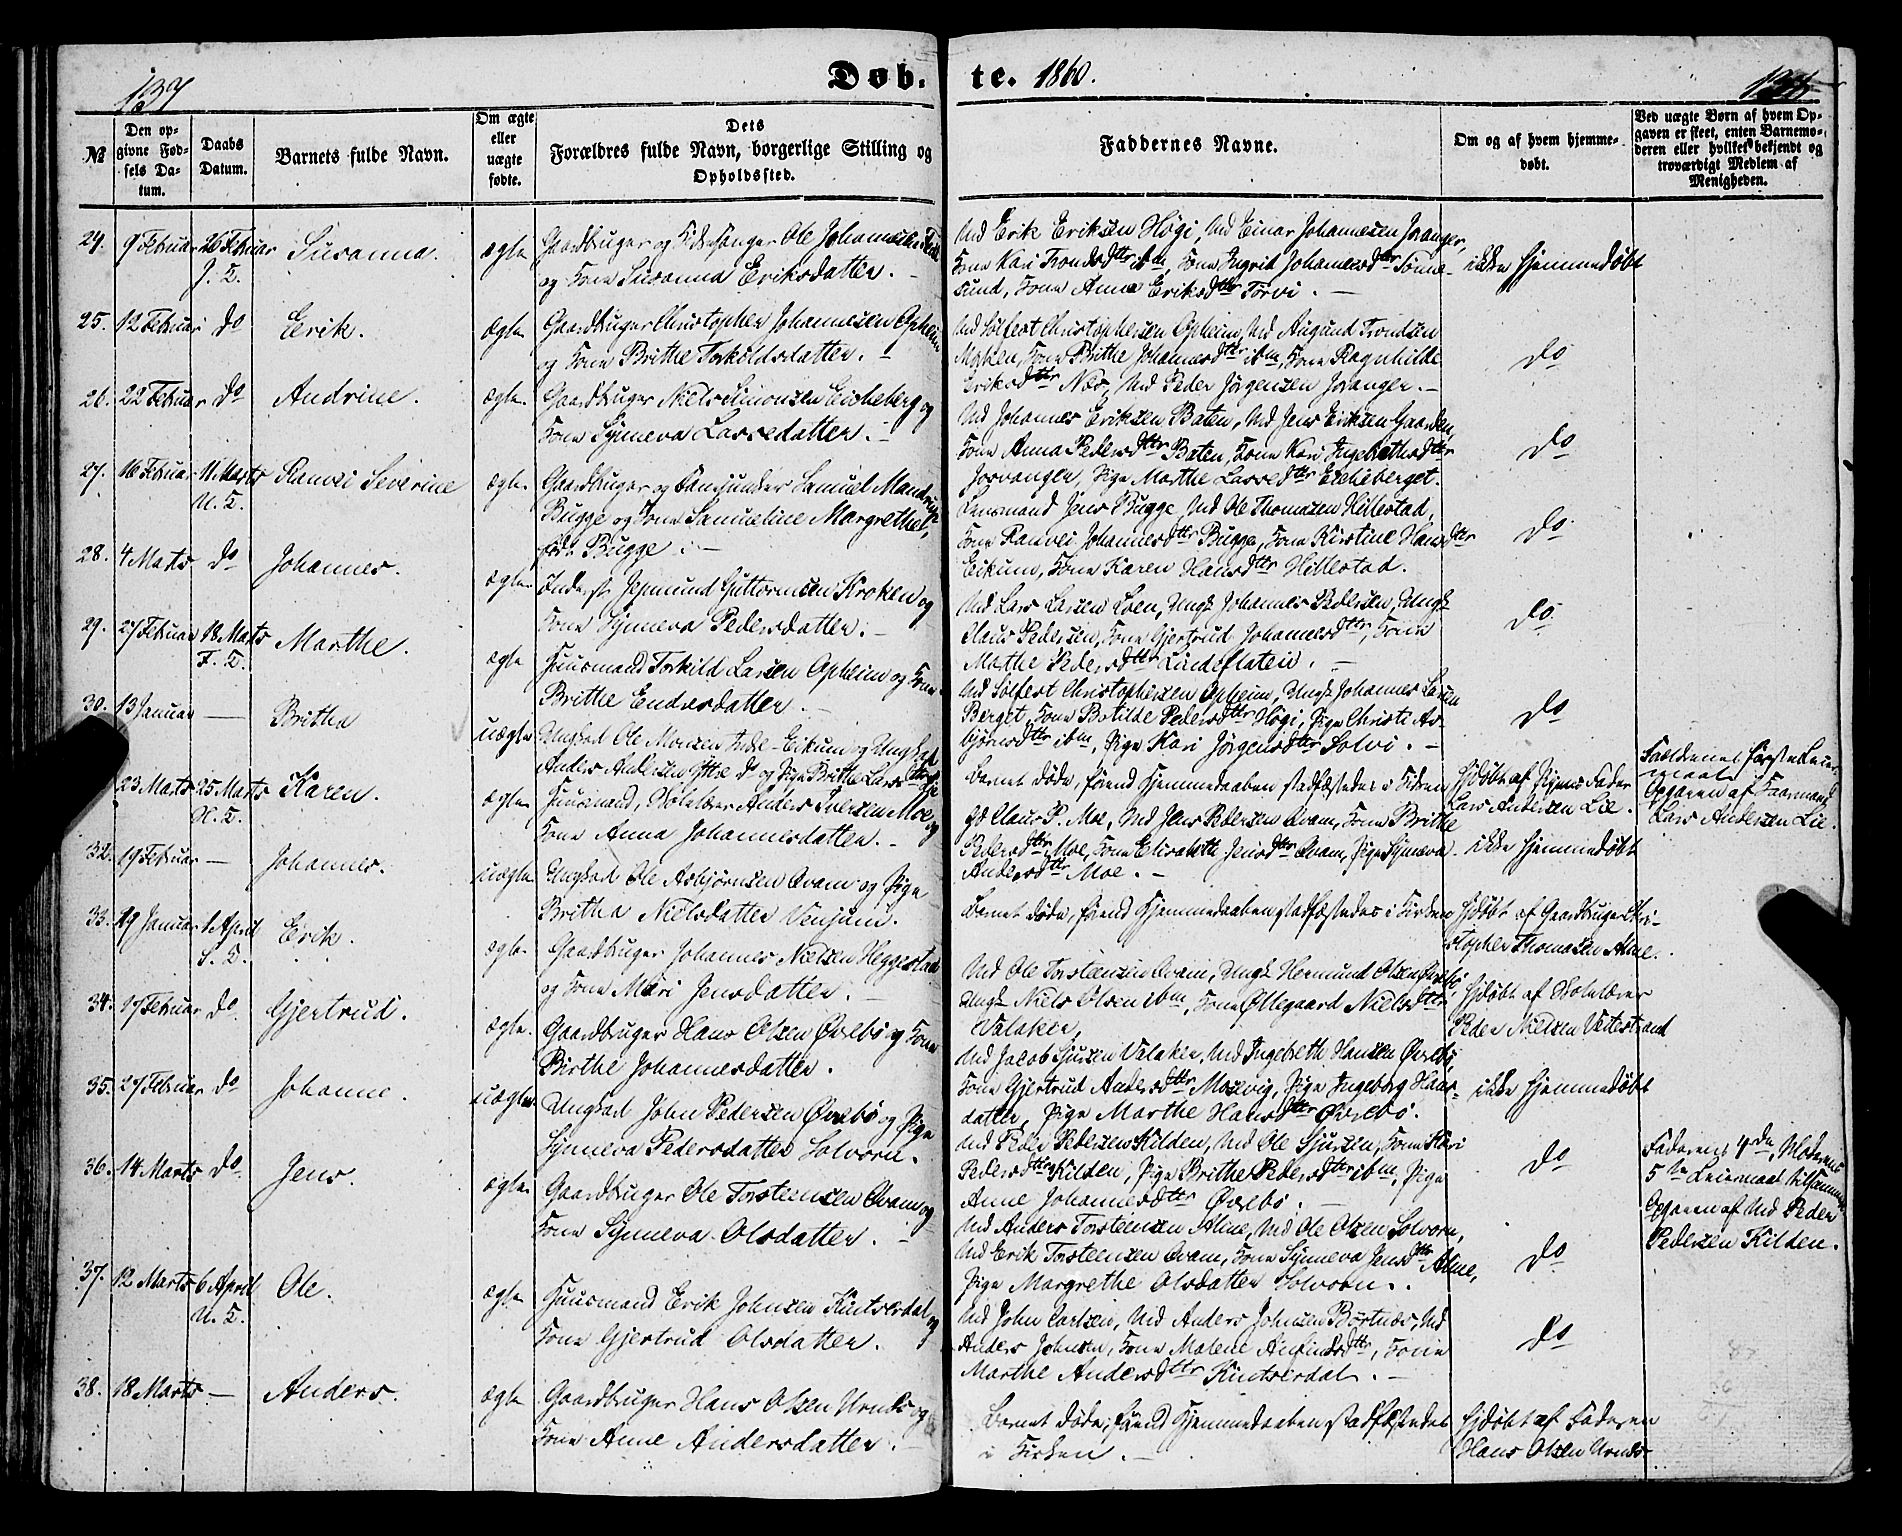 137
Døb-
te. 1860.
№
Den op-
givne Fød-
sels Da-
tum.
Daabs
Datum.
Barnets fulde Navn.
Om ægte
eller
uægte
fødte.
Dets
Forældres fulde Navn, borgerlige Stilling og
Opholdssted.
Faddernes Navne.
Om og af hvem hjemme-
døbt.
Ved uægte Børn af hvem Op-
gaven er skeet, enten Barnemo-
deren eller hvilket bekjendt og
troværdigt Medlem af
Menigheden.
24. 9 Februar 26 Februar Susanna. ægte Gaardbruger og Kirkesanger Ole Johannesen
og Kone Susanna Eriksdatter.
Md Erik Eriksen Høgi, Md Einar Johannesen Joranger,
Kone Kari Trondsdttr ibm, Kone Ingrid Johannesdttr Sønne-
sund, Kone Anna Eriksdttr Torvi.
ikke hjemmedøbt
25. 12 Februar do Erik. ægte Gaardbruger Christopher Johannesen Opheim
og Kone Brithe Torkildsdatter.
Md Solfest Christophersen Opheim, Md Augund Trondsen
Moken, Kone Brithe Johannesdttr ibm, Kone Ragnhilde
Eriksdttr Næs, Md Peder Jørgensen Joranger.
do
26. 22 Februar do Andrine. ægte. Gaardbruger Niels Simonsen Eicheberg og
Kone Synneva Lassedatter.
Md Johannes Eriksen Baten, Md Jens Eriksen Gaarden,
Kone Anna Pedersdttr Baten, Kone Kari Ingebrethsdttr
Jorvangen, Pige Marthe Lassedttr Eicheberget.
do
27. 16 Februar 11 Marts Ranvei Severine ægte. Gaardbruger og Landjunker Samuel Mandrup
Bugge og Kone Samueline Margrethe,
fød. Bugge.
Lensmand Jens Bugge, Md Ole Thomasen Hillestad,
Kone Ranvei Johannesdttr Bugge, Kone Kirstine Hansdttr
Eikum, Kone Karen Hansdttr Hillestad.
do
28. 4 Marts do Johannes. ægte. Inderst Jermund Guttormsen Kroken og
Kone Synneva Pedersdatter.
Md Lars Larsen Loen, Ungk Johannes Pedersen, Ungk
Claus Pedersen, Kone Gjertrud Johannesdttr, Kone
Marthe Pedersdttr Lindeflaten.
do
29. 27 Februar 18 Marts Marthe. ægte Huusmand Torkild Larsen Opheim og Kone
Brithe Endresdatter.
Md Solfest Christophersen Opheim, Ungk Johannes Larsen
Berget, Kone Botilde Pedersdttr Høgi, Pige Christi As-
bjørnsdttr ibm, Pige Kari Jørgensdttr Solvi.
do
30. 13 Januar — Britha uægte Ungkarl Ole Monsen Indre-Eikum og Ungkarl
Anders Andersen Yttre do og Pige Brithe Larsdttr
Barnet døde, førend Hjemmedaaben stadfæstedes i Kirken
Hjdøbt af Pigens Fader
Lars Andersen Lie.
Opgaven af Gaardmand
Lars Andersen Lie.
23 Marts 25 Marts Karen. ægte Huusmand, Skolelærer Anders Iversen Moe og
Kone Anna Johannesdatter.
Gd Claus P. Moe, Md Jens Pedersen Qvam, Kone Brithe
Pedersdttr Moe, Kone Elisabeth Jensdttr Qvam, Pige Synneva
Andersdttr Moe.
ikke hjemmedøbt
32. 19 Februar — Johannes. uægte Ungkarl Ole Asbjørnsen Qvam og Pige
Britha Nielsdatter Venjum.
Barnet døde, førend Hjemmedaaben stadfæstedes i Kirken
Hjdøbt af Gaardbruger Chri-
stopher Thomasen Alme.
33. 19 Januar 1 April Erik. ægte. Gaardbruger Johannes Nielsen Heggestad
og Kone Mari Jensdatter.
Md Ole Torsteensen Qvam, Ungk Hermund Olsen Øvrebø,
Ungk Niels Olsen ibm, Kone Øllegaard Nielsdttr
Valaker,
Hjdøbt af Skolelærer
Peder Nielsen Vetestrand
34. 17 Februar do Gjertrud. ægte. Gaardbruger Hans Olsen Øvrebø og Kone
Birthe Johannesdatter.
Md Jacob Sjursen Valaker, Md Ingebreth Hansen Øvrebø,
Kone Gjertrud Andersdttr Mosevig, Pige Ingeborg Hans-
datter, Pige Marthe Hansdttr Øvrebø.
ikke hjemmedøbt
35. 27 Februar do Johanne. uægte. Ungkarl John Pedersen Øvrebø og Pige
Synneva Pedersdatter Solvorn.
Md Peder Pedersen Kilden, Md Ole Sjursen, Kone Kari
Pedersdttr Kilden, Pige Brithe Pedersdttr ibm, Pige
Anne Johannesdttr Øvrebø.
do
Faderens 4de, Moderens
5te Leiermaal
Opgaven af Md Peder
Pedersen Kilden.
36. 14 Marts do. Jens. ægte. Gaardbruger Ole Torsteensen Qvam og
Kone Synneva Olsdatter.
Md Anders Torsteensen Alme, Md Ole Olsen Solvorn,
Md Erik Torsteensen Qvam, Kone Synneva Jensdttr Alme,
Pige Margrethe Olsdatter Solvorn.
do
37. 12 Marts 6 April Ole. ægte Huusmand Erik Johnsen Kinserdal og
Kone Gjertrud Olsdatter.
Md John Carlsen, Md Anders Johnsen Børtnæs, Md
Anders Johnsen, Kone Malene Anfindsdttr, Kone
Marthe Andersdttr Kinserdal.
do
38. 18 Marts — Anders. ægte Gaardbruger Hans Olsen Urnæs og
Kone Anne Andersdatter.
Barnet døde, førend Hjemmedaaben stadfæstedes
i Kirken.
Hjdøbt af Faderen
Hans Olsen Urnæs.